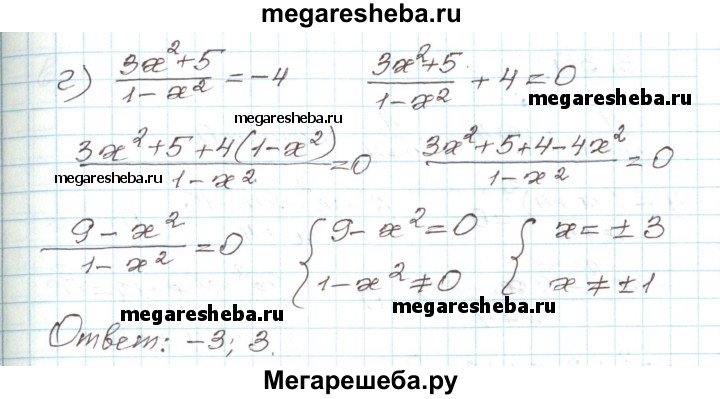 megaresheba.ru
г) (3x²+5)/(1-x²) = -4    (3x²+5)/(1-x²) + 4 = 0
megaresheba.ru megaresheba.ru
(3x²+5+4(1-x²))/(1-x²) = 0    (3x²+5+4-4x²)/(1-x²) = 0
megaresheba.ru
(9-x²)/(1-x²) = 0    { 9-x²=0    { x=±3
{ 1-x²≠0    { x≠±1
megaresheba.ru megaresheba.ru
Ответ: -3; 3.
Мегарешеба.ру